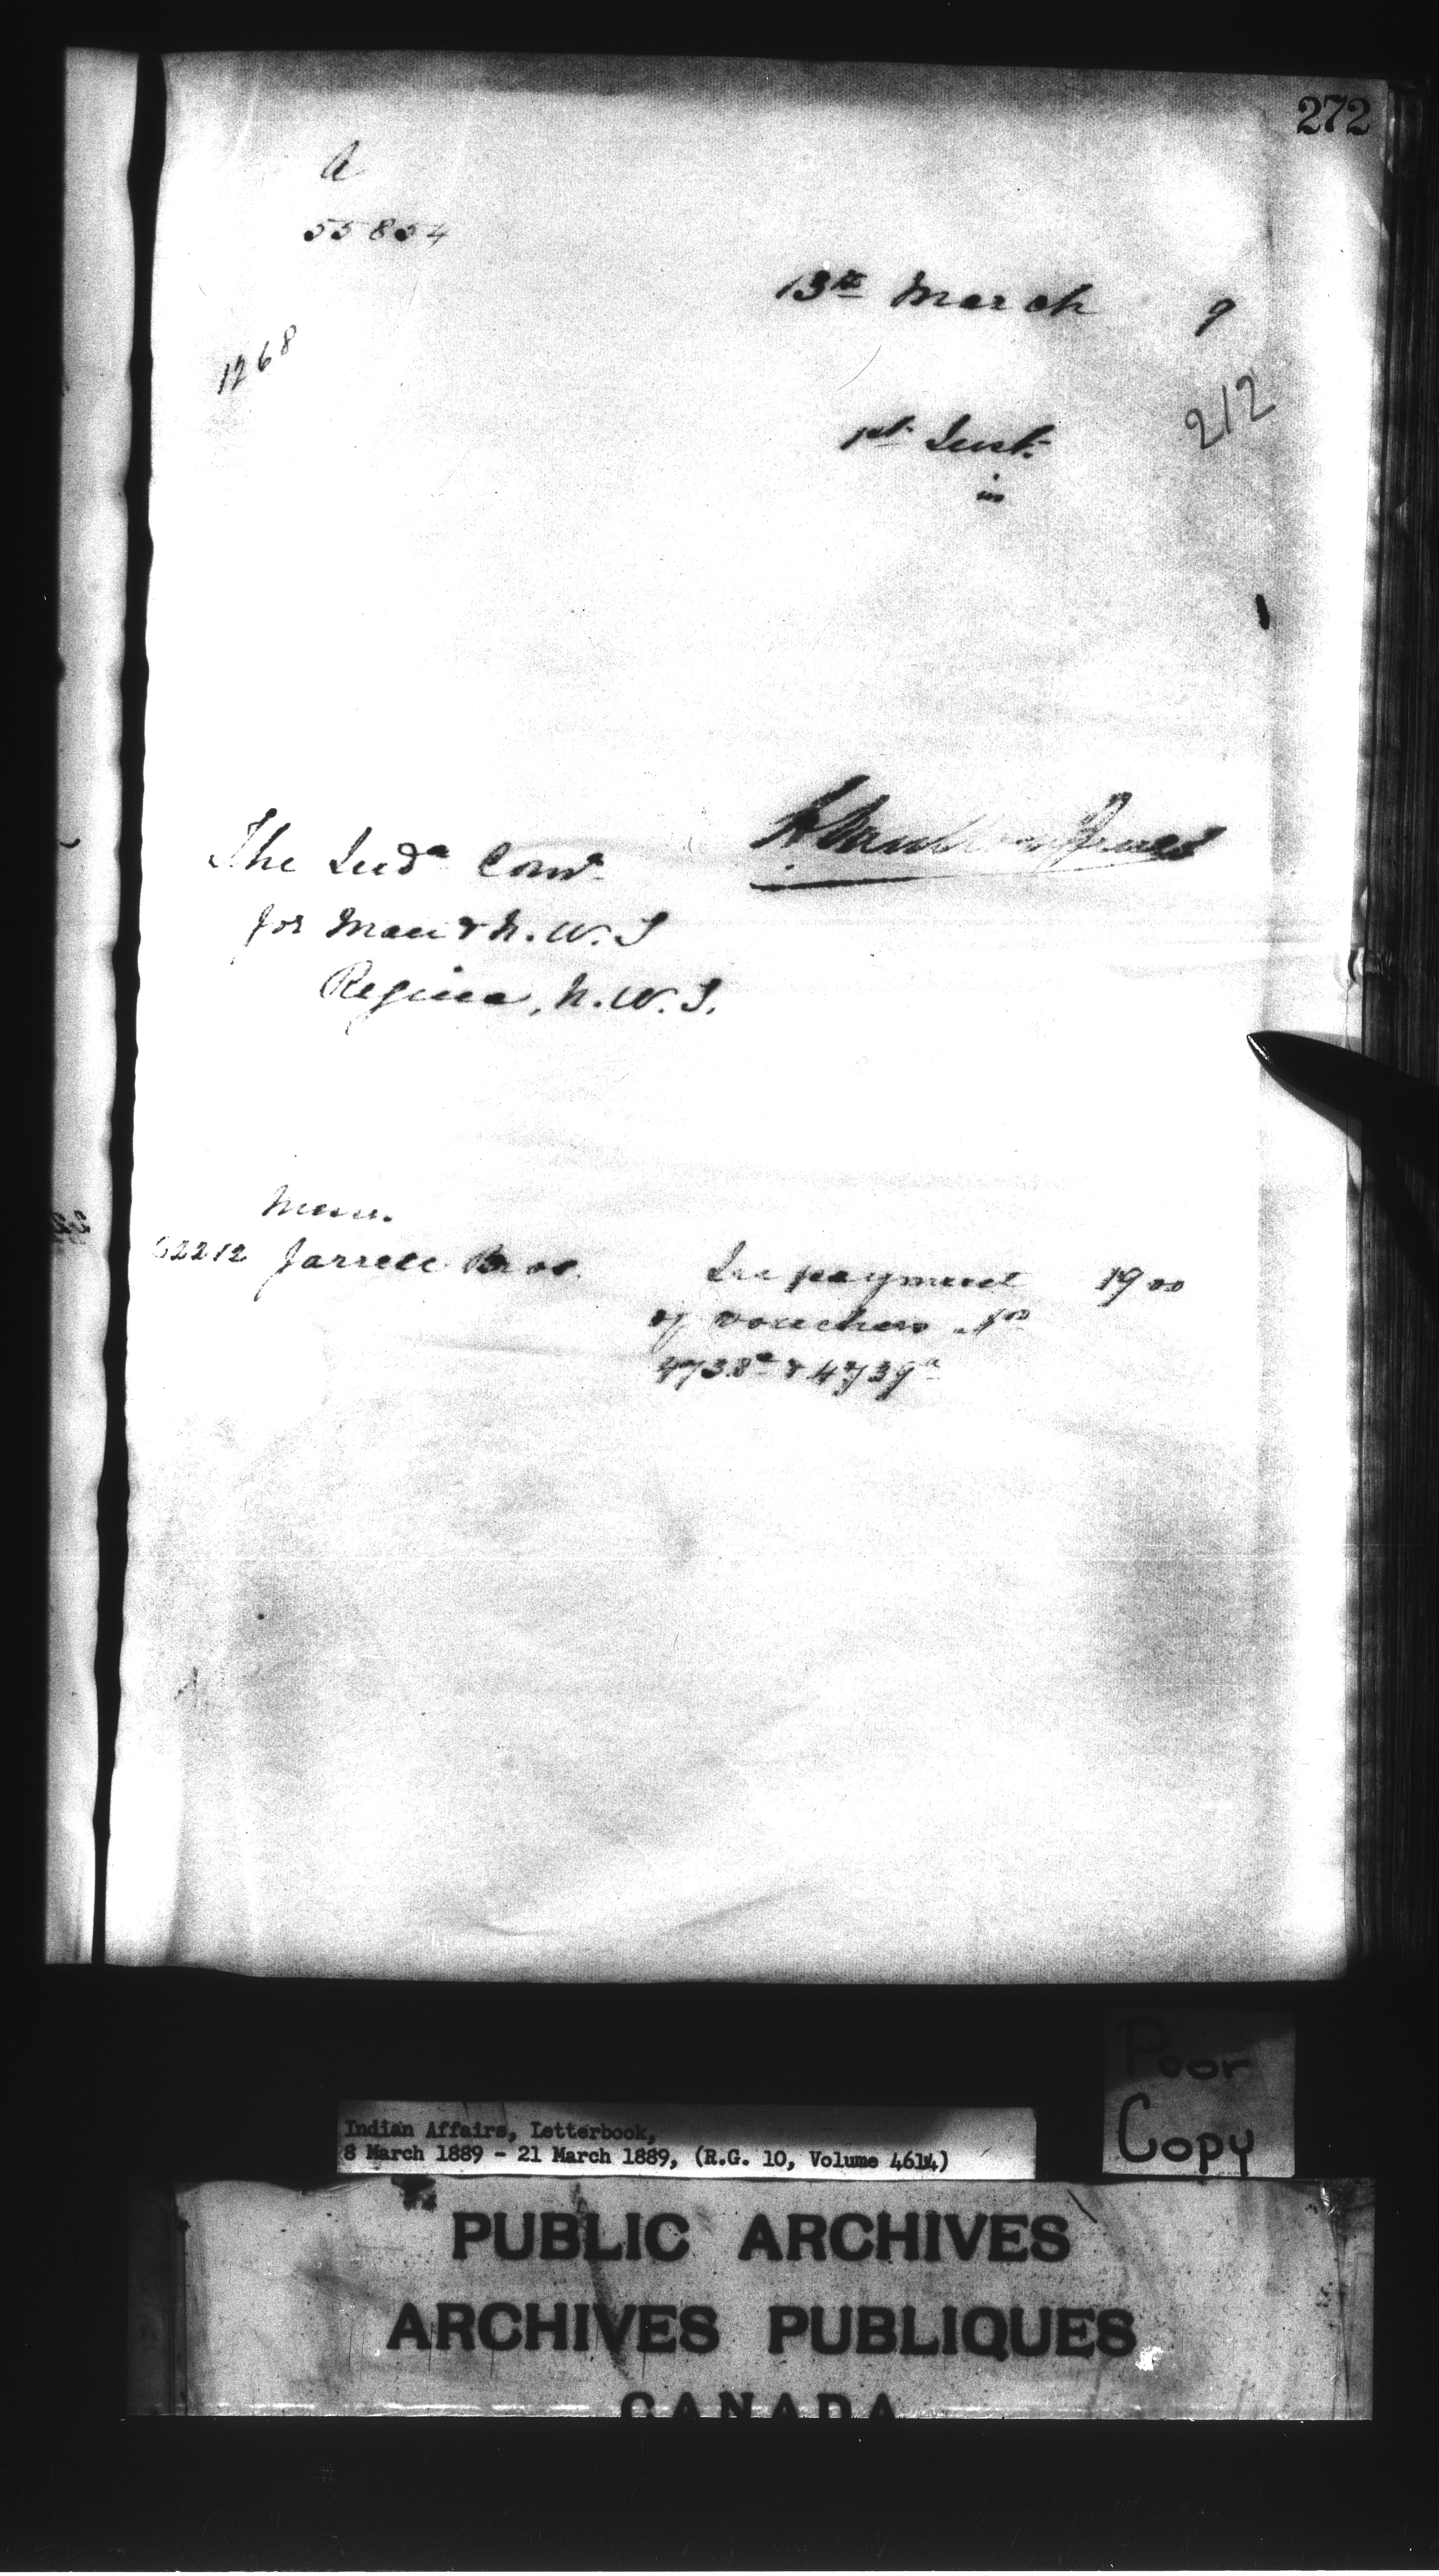 272
A
55854
13th March 9
1268
212
1st Inst.
in
The Indn Comr
for Man & N.W.T
Regina, N.W.T.
Messrs.
62212 Jarrett Bros. In payment 19 00
of vouchers Nos
4738a & 4739a
Poor
Copy
Indian Affairs, Letterbook,
8 March 1889 - 21 March 1889, (R.G. 10, Volume 4614)
PUBLIC ARCHIVES
ARCHIVES PUBLIQUES
CANADA